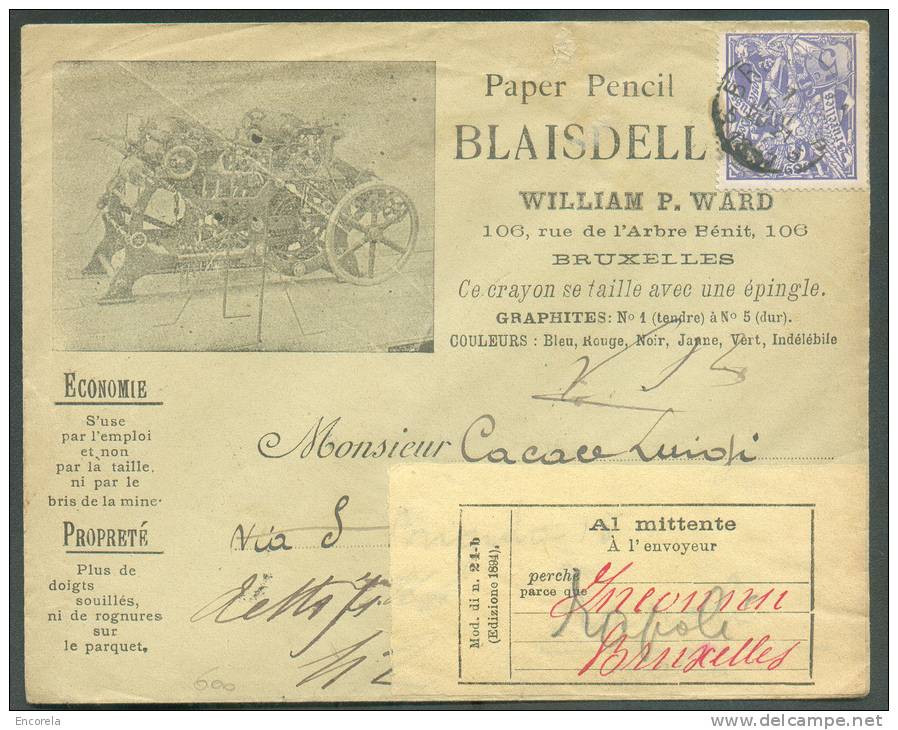 Paper Pencil
BLAISDELL
WILLIAM P. WARD
106, rue de l'Arbre Bénit, 106
BRUXELLES
Ce crayon se taille avec une épingle.
GRAPHITES: No 1 (tendre) à No 5 (dur).
COULEURS : Bleu, Rouge, Noir, Jaune, Vert, Indélébile
ECONOMIE
S'use
par l'emploi
et non
par la taille,
ni par le
bris de la mine.
PROPRETÉ
Plus de
doigts
souillés,
ni de rognures
sur
le parquet.
Monsieur Cacace Luigi
Via S
Al mittente
À l'envoyeur
perchè
parce que Inconnu
Napoli
Bruxelles
Mod. di n. 24-b
(Edizione 1894).
600
Encorela
www.delcampe.net